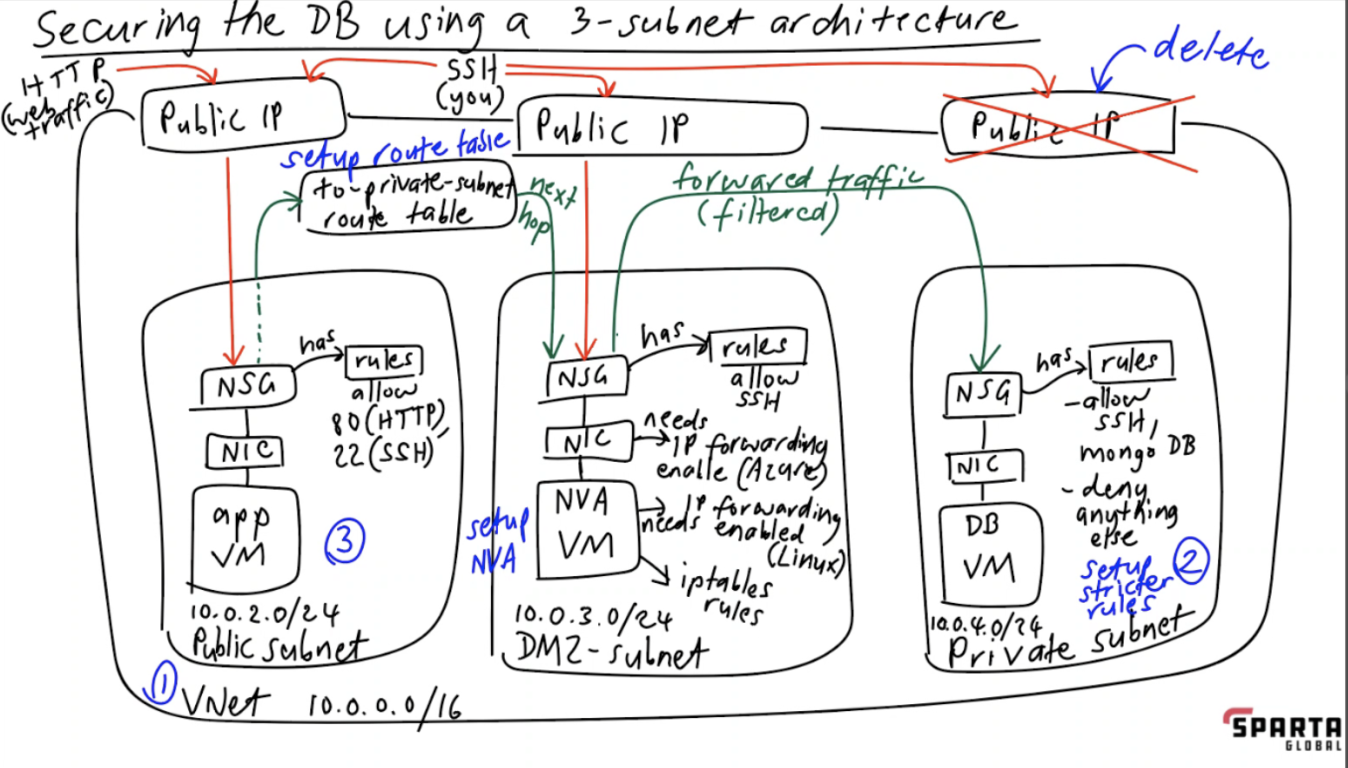 Securing the DB using a 3-subnet architecture
HTTP
(web
traffic)
SSH
(you)
delete
Public IP
Public IP
Public IP
setup route table
to-private-subnet
route table
next
hop
forwared traffic
(filtered)
NSG
has
rules
allow
80 (HTTP),
22 (SSH)
NIC
app
VM
3
10.0.2.0/24
Public subnet
NSG
has
rules
allow
SSH
NIC
needs
IP forwarding
enable (Azure)
setup
NVA
NVA
VM
needs
IP forwarding
enabled
(Linux)
iptables
rules
10.0.3.0/24
DMZ-subnet
NSG
has
rules
-allow
SSH,
mongo DB
- deny
anything
else
NIC
DB
VM
setup
stricter
rules
2
10.0.4.0/24
Private subnet
1
VNet 10.0.0.0/16
SPARTA
GLOBAL